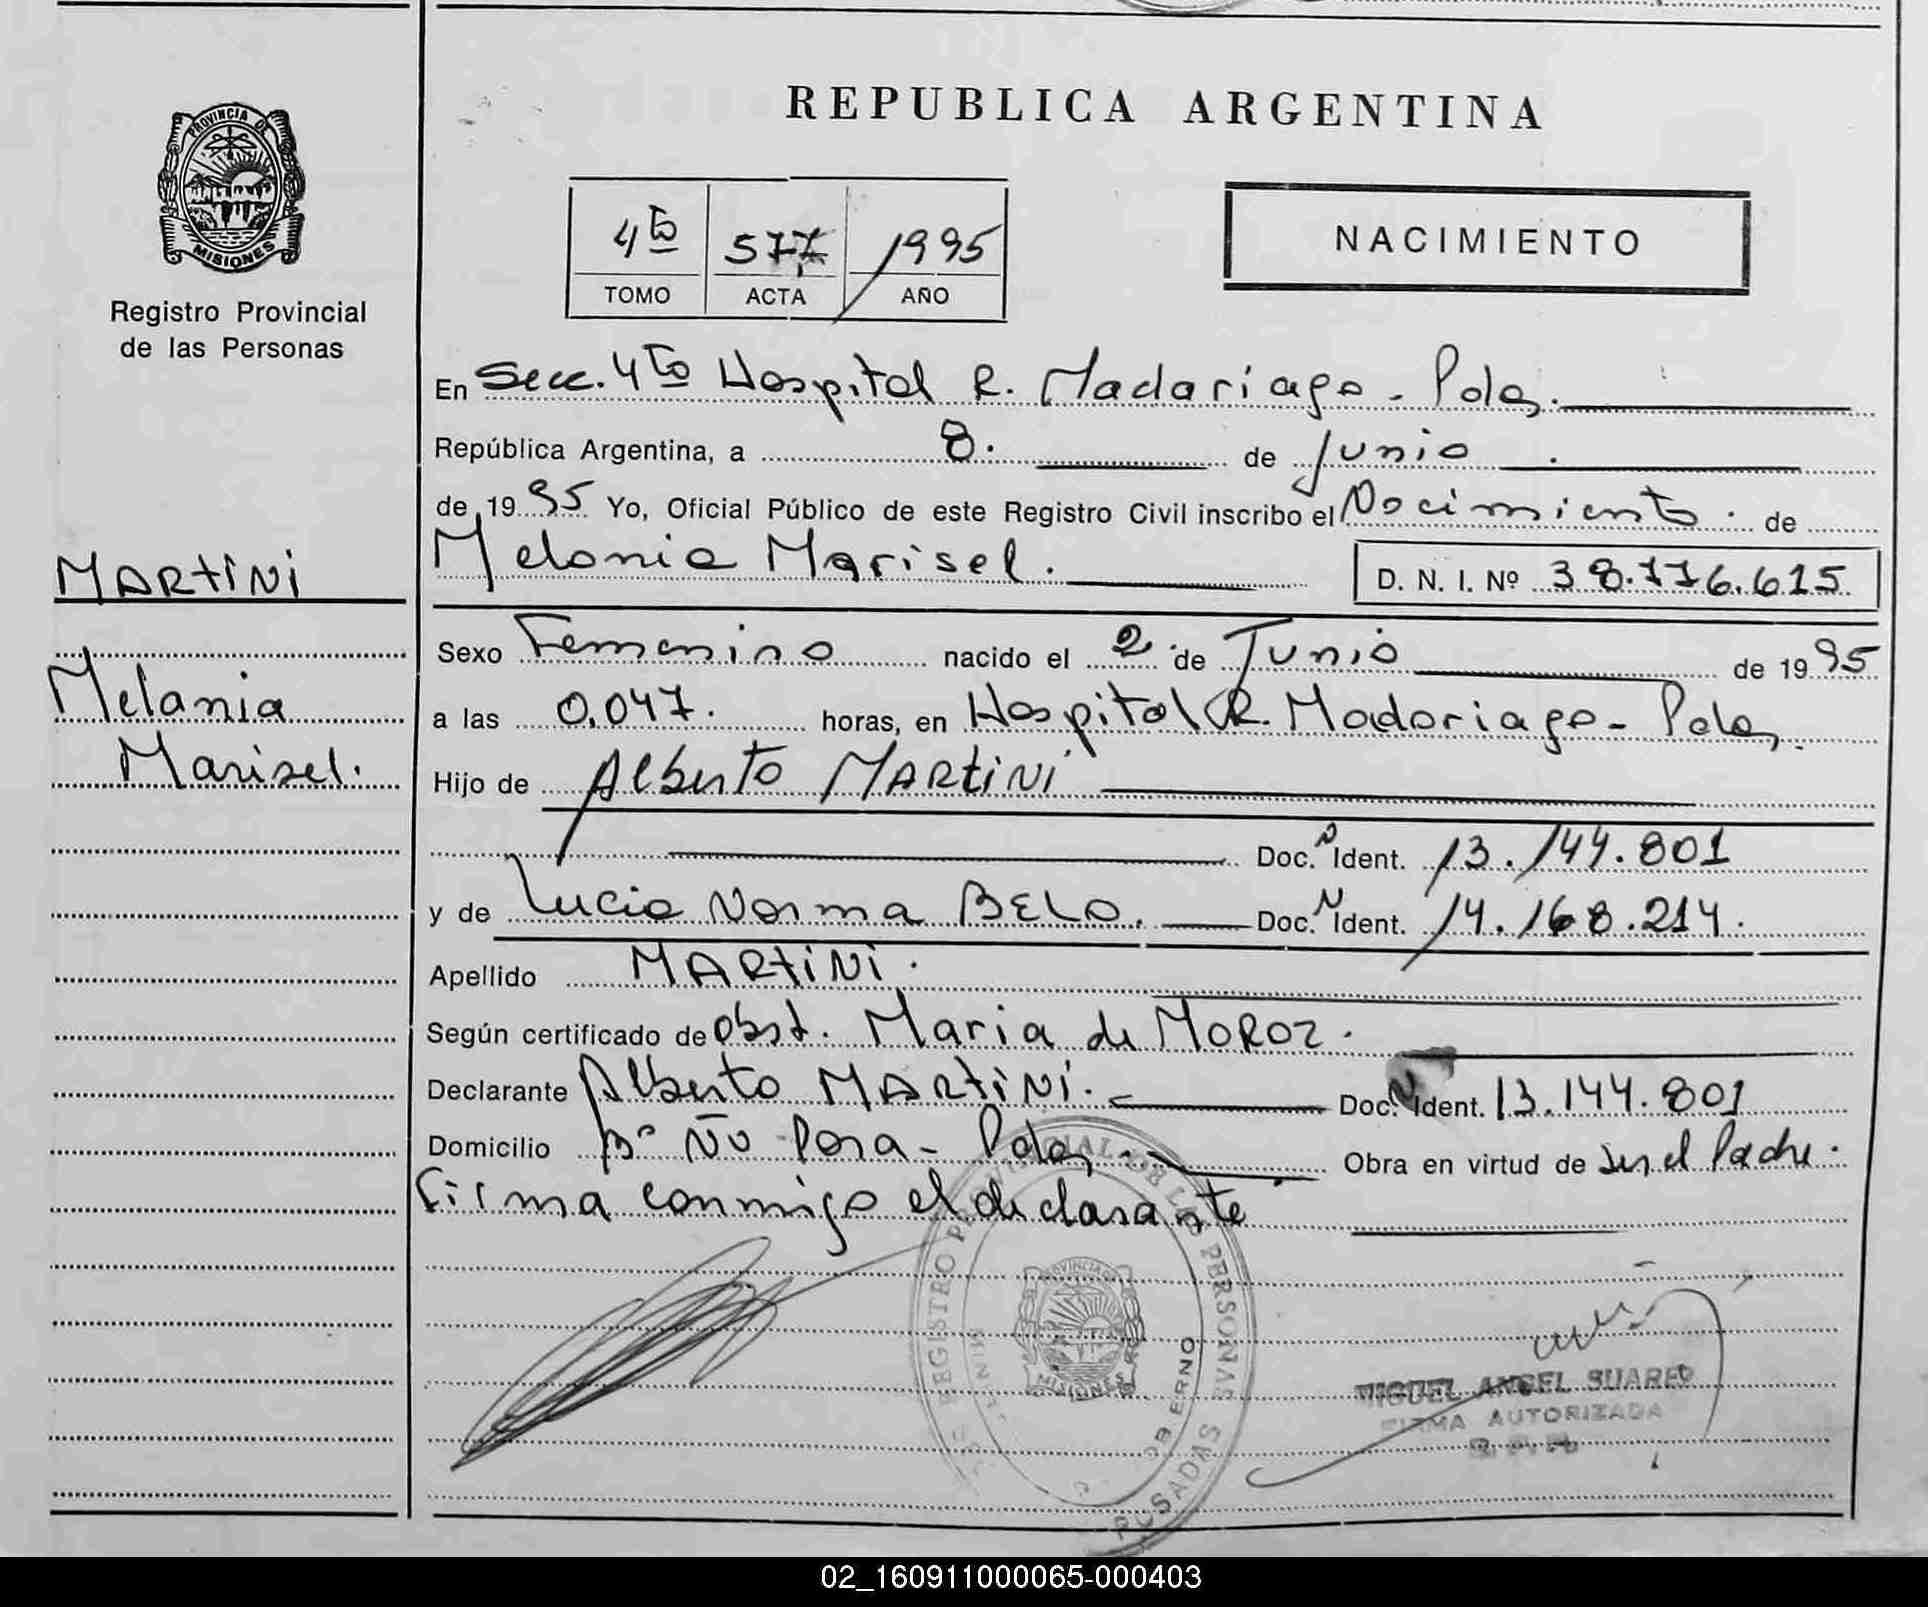 REPUBLICA ARGENTINA
PROVINCIA DE
MISIONES
Registro Provincial
de las Personas
4to 577 1995
TOMO ACTA AÑO
NACIMIENTO
En Secc. 4to Hospital R. Madariaga - Pdas.
República Argentina, a 8. de Junio
de 1995 Yo, Oficial Público de este Registro Civil inscribo el Nacimiento de
MARTINI
Melania Marisel. D. N. I. Nº 38.776.615
Sexo Femenino nacido el 2 de Junio de 1995
Melania
a las 0,047. horas, en Hospital R. Madariaga - Pdas.
Marisel.
Hijo de Alberto MARTINI
Doc. N Ident. 13.144.801
y de Lucia Norma BELO. Doc. N Ident. 14.168.214.
Apellido MARTINI.
Según certificado de Obst. Maria de MOROZ.
Declarante Alberto MARTINI. Doc. N Ident. 13.144.801
Domicilio Bº Ñu Pora - Pdas. Obra en virtud de ser el Padre.
Firma conmigo el declarante
REGISTRO PROVINCIAL DE LAS PERSONAS
PROVINCIA DE
MISIONES
POSADAS
MIGUEL ANGEL SUAREZ
FIRMA AUTORIZADA
02_160911000065-000403